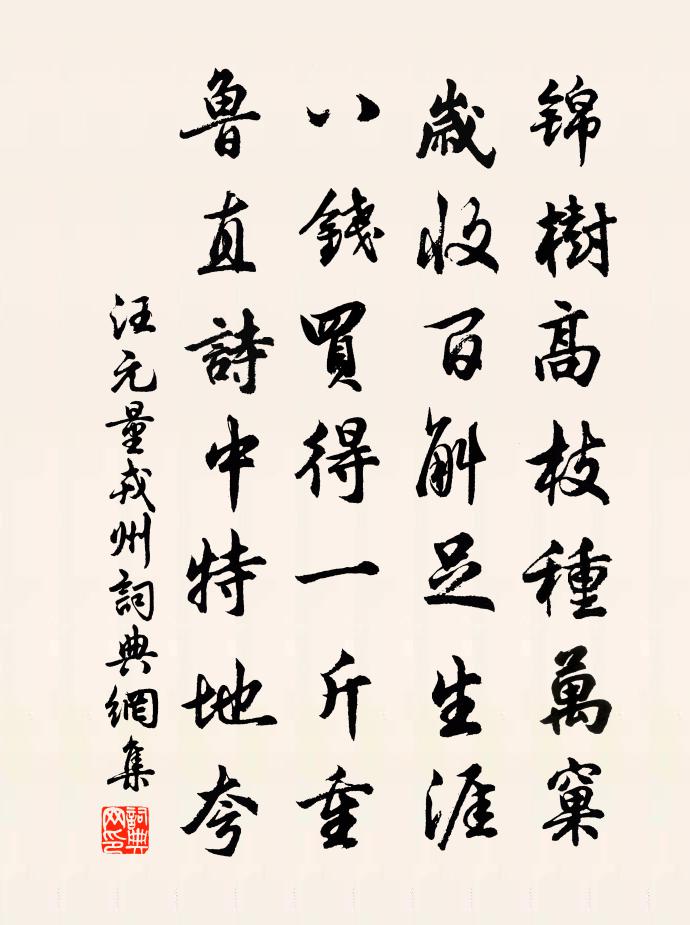 錦樹高枝種萬窠
歲收百斛足生涯
八錢買得一斤重
魯直詩中特地夸
汪元量戎州詞典網集
詞典網印